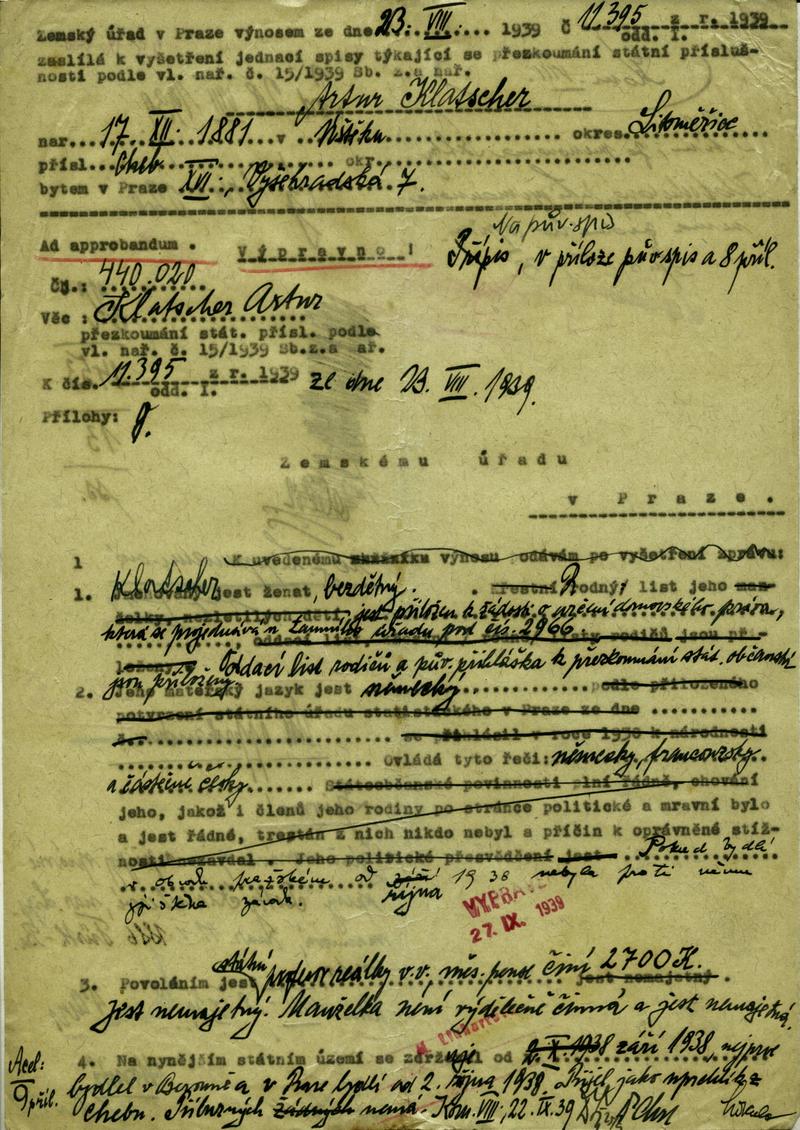 Zemský úřad v Praze výnosem ze dne 23. VIII. 1939 č 11.395 z r. 1939
odd. I.
zasílá k vyšetření jednací spisy týkající se přezkoumání státní přísluš-
nosti podle vl. nař. č. 15/1939 Sb. z.a nař.
Artur Klatscher
nar. 17. XII. 1881 v Úštěku okres Litoměřice
přísl. Cheb okr.
bytem v Praze XVI., Vyšehradská 7.
Na pův. spis
Ad approbandum. Výpravno! Přípis, v příloze pův. spis a 8 příl.
Čj.: 440.020
Věc: Klatscher Artur
přezkoumání stát. přísl. podle
vl. nař. č. 15/1939 Sb.z.a ař.
K čís. 11.395 z r. 1939 ze dne 23. VIII. 1939.
odd. I.
Přílohy:
Zemskému úřadu
v Praze.
1 K uvedenému výnosu odávám po vyšetření zprávu:
1. Klatscher jest ženat, bezdětný. Rodný list jeho
jest přiložen k žádosti o určení domovského práva,
která se projednává u Zemského úřadu pod čís. 2966
Oddací list rodičů a pův. přihláška k přezkoumání stát. občanství
jsou přiloženy.
2. Jeho mateřský jazyk jest německý podle přiloženého
potvrzení státního úřadu statistického v Praze ze dne
č. se přihlásil v roce 1930 k národnosti
Ovládá tyto řeči: německy, francouzsky
a částečně česky. Státoobčanské povinnosti plní řádně, chování
jeho, jakož i členů jeho rodiny po stránce politické a mravní bylo
a jest řádné, trestán z nich nikdo nebyl a příčin k oprávněné stíž-
nosti nezavdal. Jeho politické přesvědčení jest Pokud bydlí
v obvodu pražském od září 1938 nebylo proti němu
října
zjištěno závad.
VYPRAVENO
27. IX. 1939
3. Povoláním jest státní profesor reálky v.v., měs. pense činí 2700 K. jest nemajetný.
Jest nemajetný. Manželka není výdělečně činná a jest nemajetná.
4. Na nynějším státním území se zdržuje od 2. X. 1938 září 1938, nejprve
Acel:
9 příl.
bydlel v Berouně a v Praze bydlí od 2. října 1938. Přijel jako uprchlík z
Chebu. Příbuzných žádných nemá. Kom. VIII., 22. IX. 39